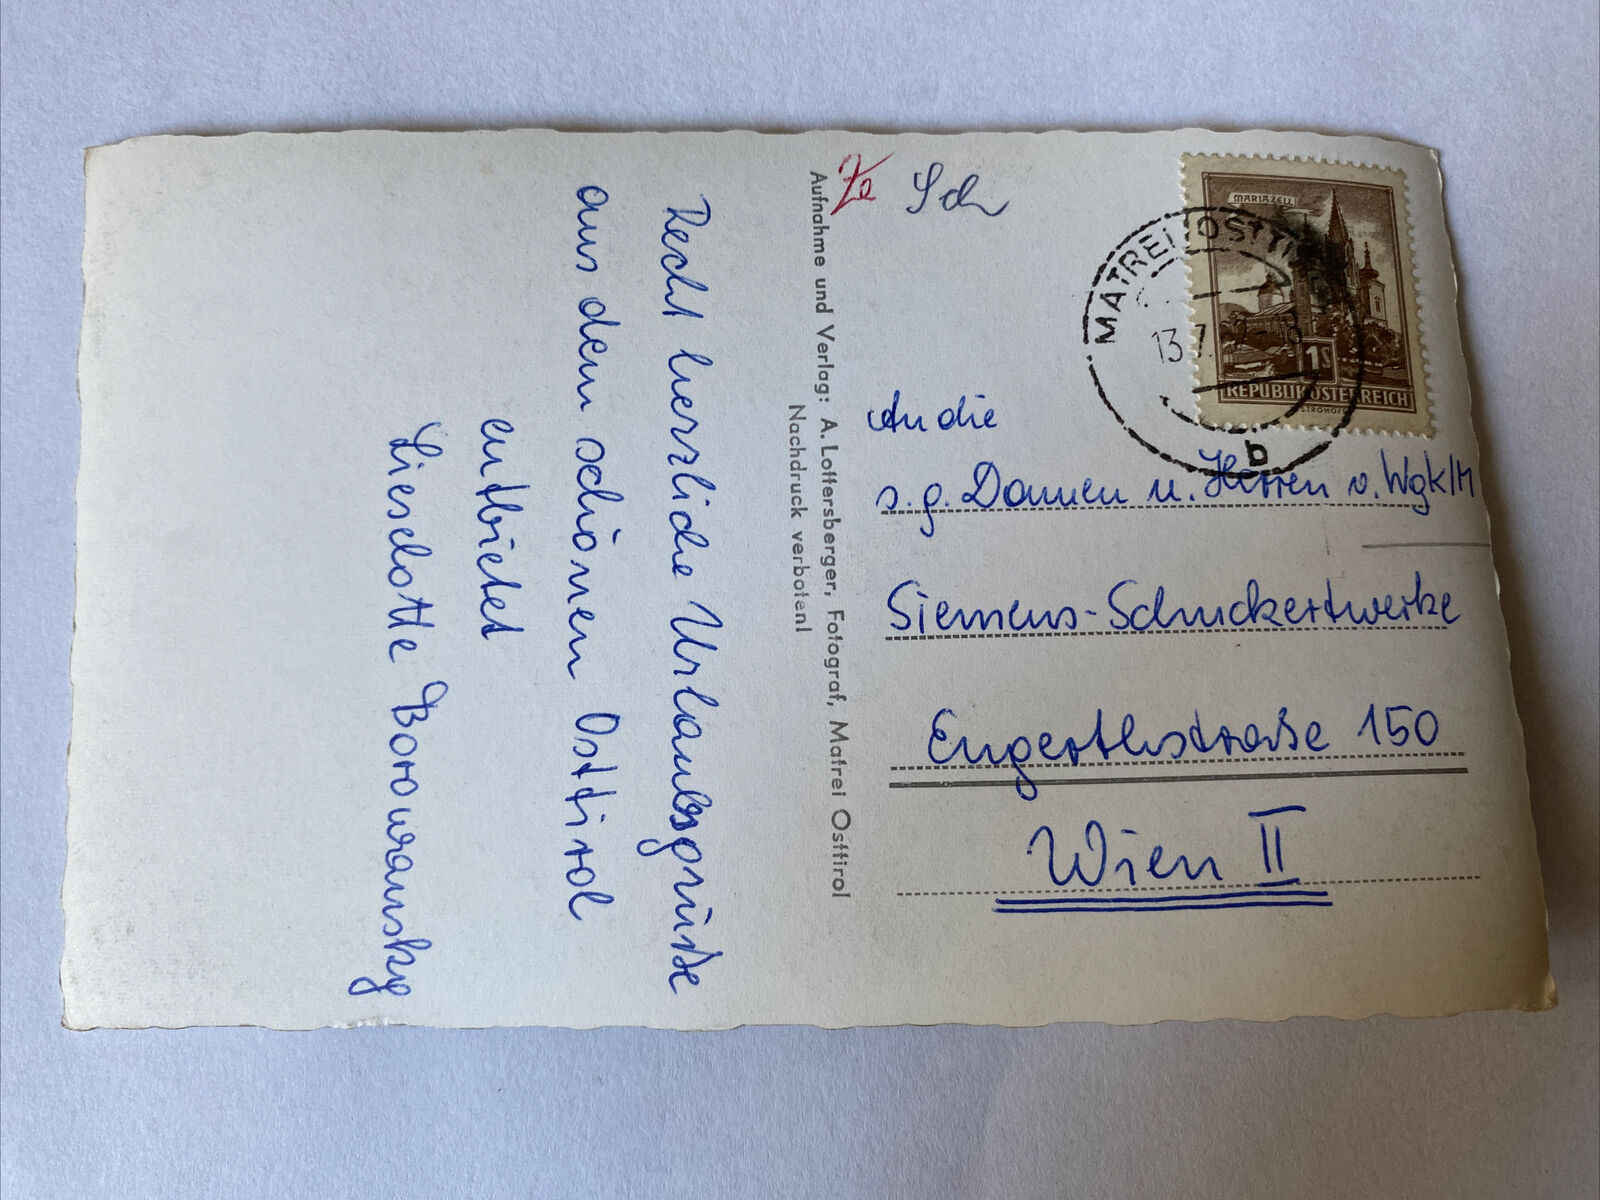 Recht herzliche Urlaubsgrüße
aus dem schönen Osttirol
entbietet
Lieselotte Borowansky
Aufnahme und Verlag: A. Lottersberger, Fotograf, Matrei Osttirol
Nachdruck verboten!
Sch
MARIAZELL
1S
REPUBLIK ÖSTERREICH
MATREI OSTTI
13.7.
b
An die
s.g. Damen u. Herren v. Wgk/M
Siemens-Schuckertwerke
Engerthstraße 150
Wien II